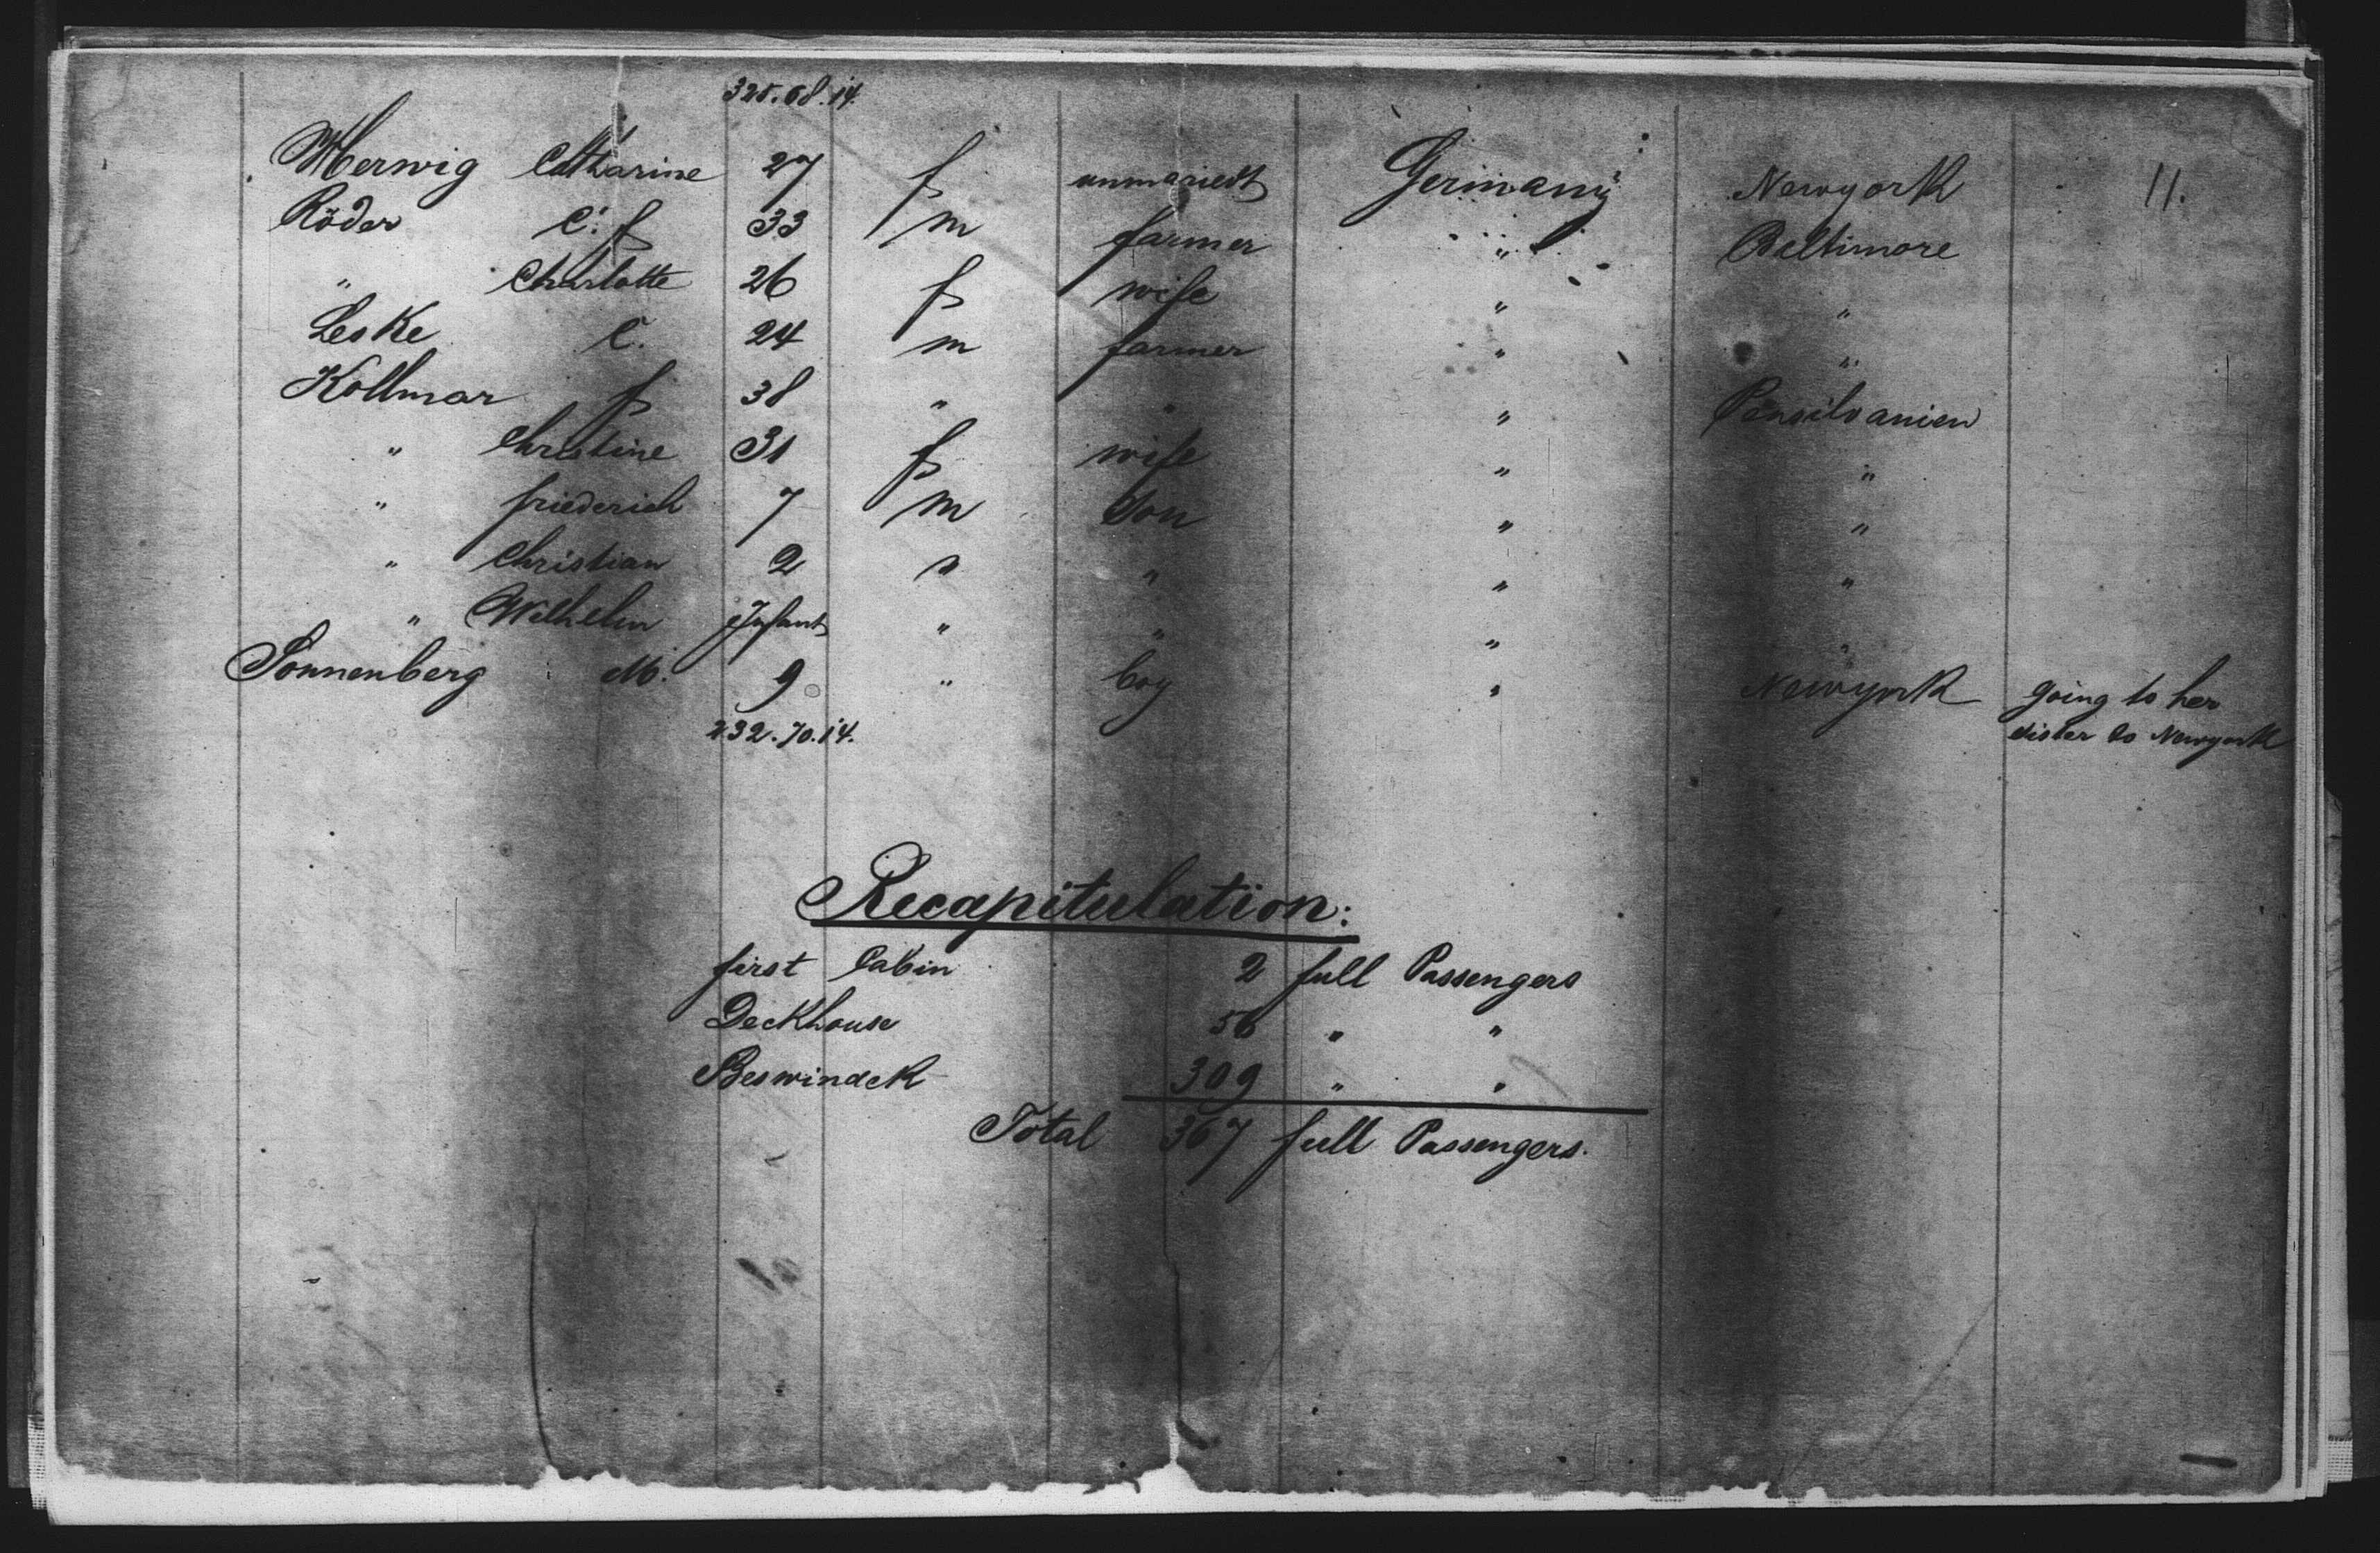 325.68.14.
Herwig Catharine 27 f unmariedt Germany Newyork 11.
Röder C. f 33 m farmer " Beltimore
" Charlotte 26 f wife " "
Leske C. 24 m farmer " "
Kollmar f 38 " " " Pensilvanien
" Christine 31 f wife " "
" friederich 7 m Son " "
" Christian 2 " " " "
" Wilhelm Infant " " " "
Sonnenberg M. 9 " boy " Newyork going to her
232.70.14. sister to Newyork
Recapitulation:
first Cabin 2 full Passengers
Deckhouse 56 " "
Beswindek 309 " "
Total 367 full Passengers.